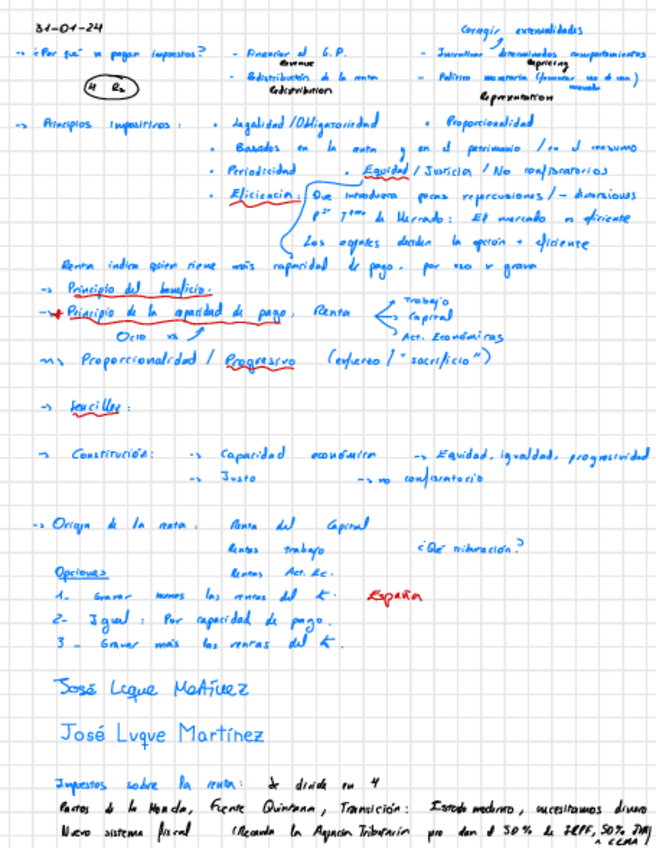 31-01-24
Corregir externalidades
-> ¿Por qué se pagan impuestos? - Financiar el G.P. - Incentivar determinados comportamientos
Revenue Repricing
4 Rs - Redistribución de la renta - Política monetaria (fomentar uso de una) moneda
Redistribution Representation
-> Principios impositivos: • Legalidad / Obligatoriedad • Proporcionalidad
• Basados en la renta y en el patrimonio / en el consumo
• Periodicidad • Equidad / Justicia / No confiscatorios
• Eficiencia: Que introduzca pocas repercusiones / - distorsiones
1er Tema de Mercado: El mercado es eficiente
Los agentes deciden la opción + eficiente
Renta indica quien tiene más capacidad de pago, por eso se grava
-> Principio del beneficio.
-> Principio de la capacidad de pago. Renta Trabajo
Capital
Ocio vs Act. Económicas
Proporcionalidad / Progresivo (esfuerzo / "sacrificio")
-> Sencillez:
-> Constitución: -> Capacidad económica -> Equidad, igualdad, progresividad
-> Justo -> no confiscatorio
-> Origen de la renta: Renta del Capital
Rentas trabajo ¿Qué tributación?
Opciones Rentas Act. Ec.
1- Gravar menos las rentas del K. España
2- Igual: Por capacidad de pago.
3- Gravar más las rentas del K.
José Luque Martínez
José Luque Martínez
Impuestos sobre la renta: Se divide en 4
Pactos de la Moncloa, Fuente Quintana, Transición: Estado moderno, necesitamos dinero
Nuevo sistema fiscal (Recauda la Agencia Tributaria pero dan el 50% de IRPF, 50% IVA
a CCAA)